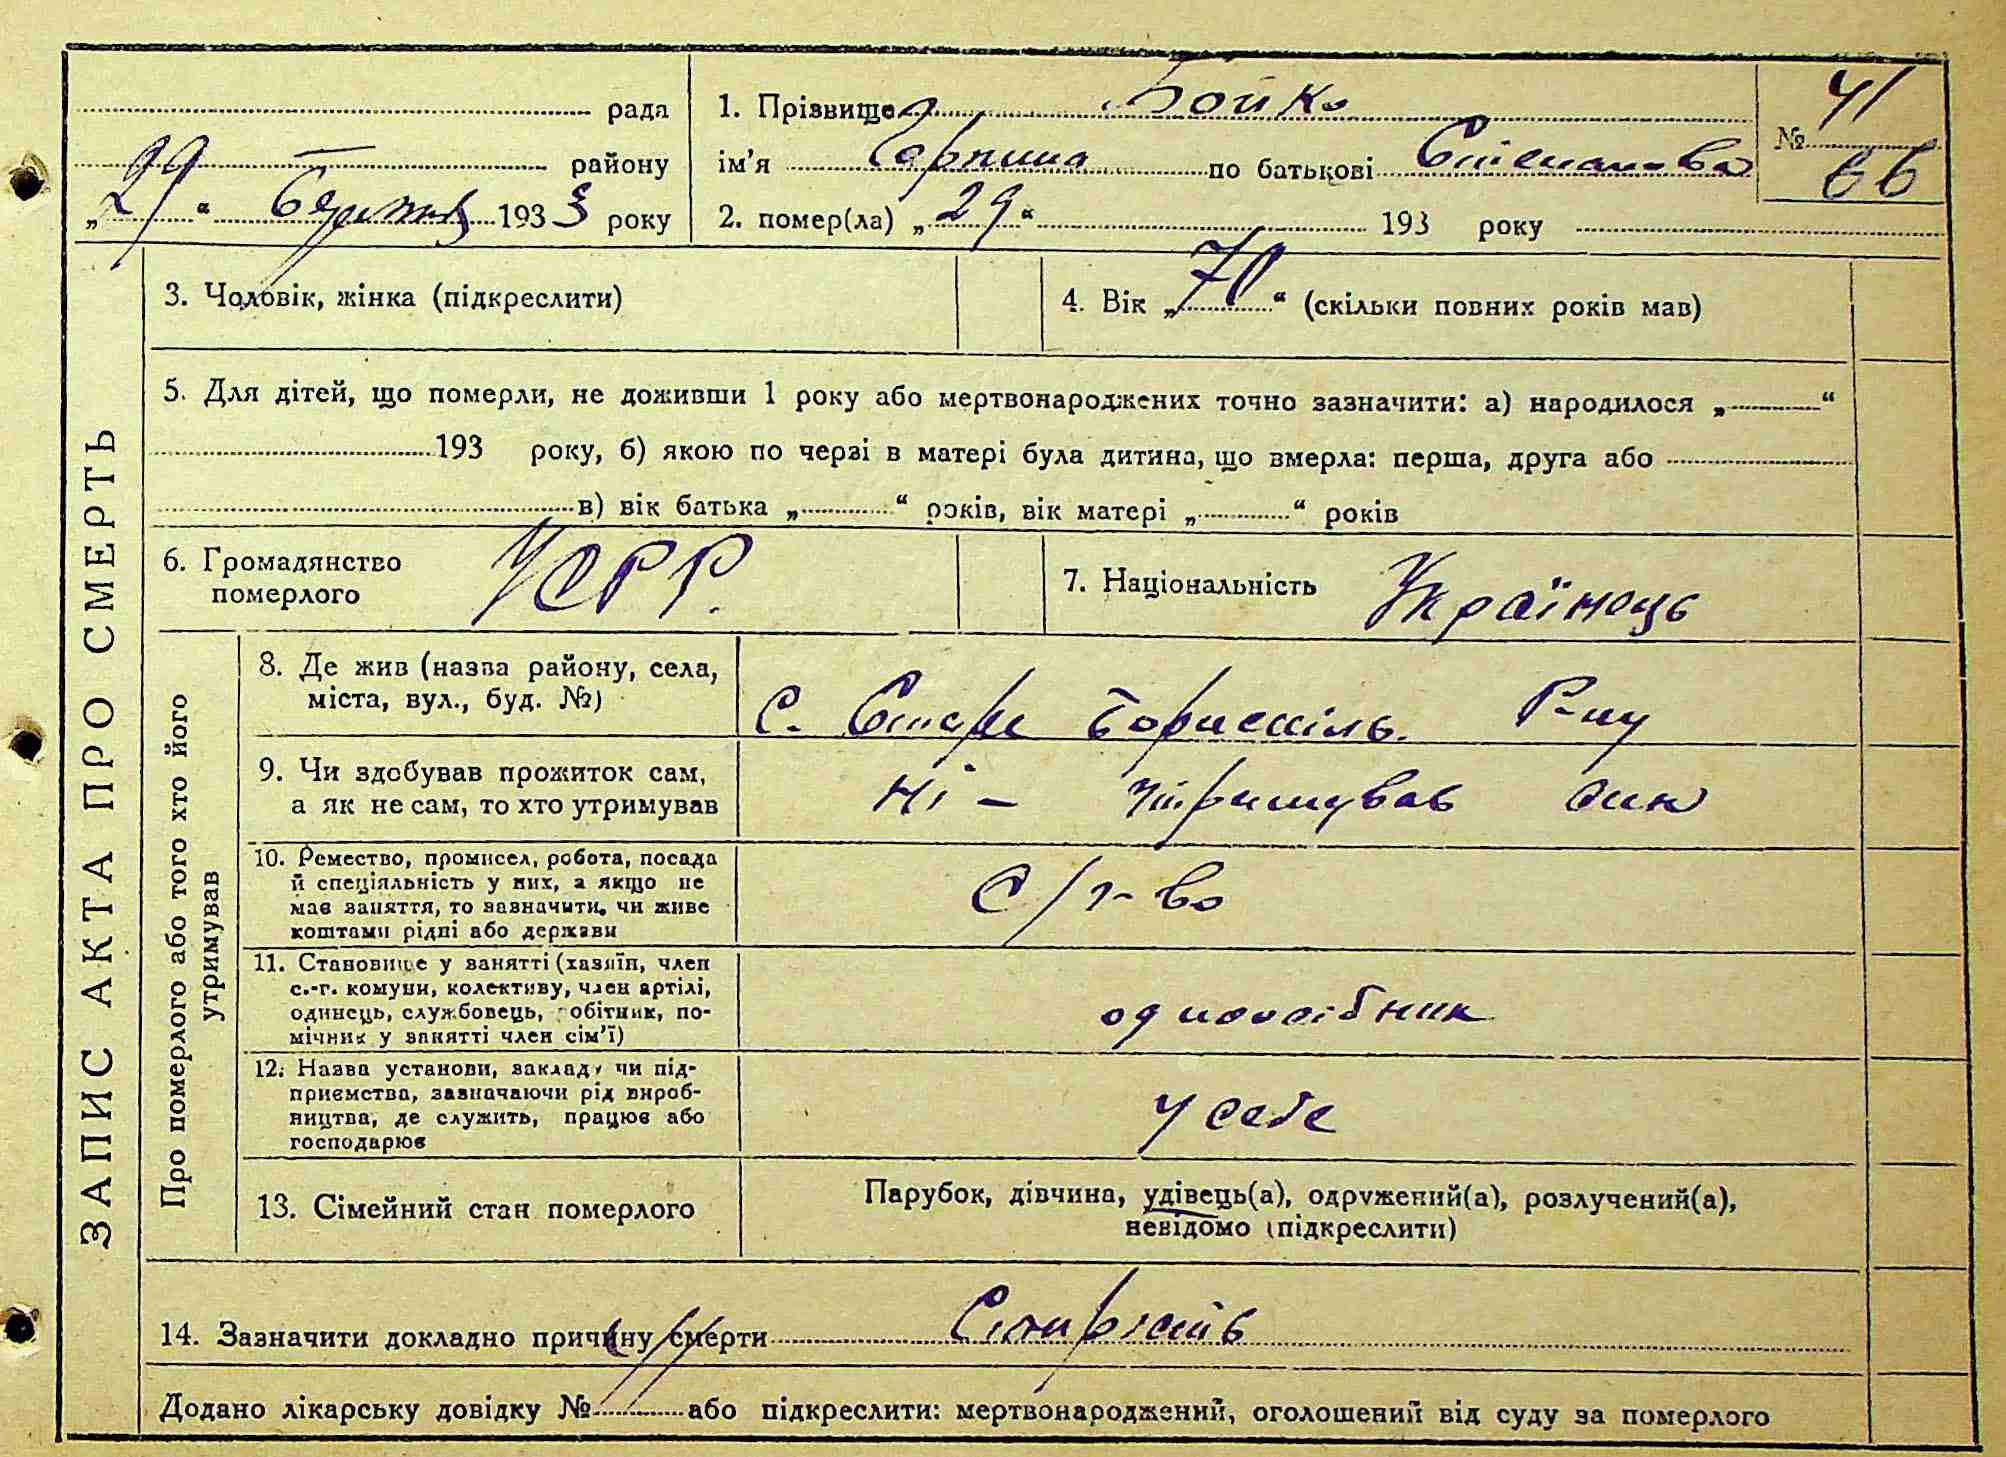 рада
району
„29“ березня 1933 року
1. Прізвище Бойко
ім'я Горпина по батькові Степанова
2. помер(ла) „29“ 193 року
№ 41
66
ЗАПИС АКТА ПРО СМЕРТЬ
3. Чоловік, жінка (підкреслити)
4. Вік „70“ (скільки повних років мав)
5. Для дітей, що померли, не доживши 1 року або мертвонароджених точно зазначити: а) народилося „ “
193 року, б) якою по черзі в матері була дитина, що вмерла: перша, друга або
в) вік батька „ “ років, вік матері „ “ років
6. Громадянство
померлого
УСРР.
7. Національність Українець
Про померлого або того хто його
утримував
8. Де жив (назва району, села,
міста, вул., буд. №)
с. Старе Бориспіль. Р-ну
9. Чи здобував прожиток сам,
а як не сам, то хто утримував
ні – утримував син
10. Ремество, промисел, робота, посада
й спеціяльність у них, а якщо не
має заняття, то зазначити, чи живе
коштами рідні або держави
С/г-во
11. Становище у занятті (хазяїн, член
с.-г. комуни, колективу, член артілі,
одинець, службовець, робітник, по-
мічник у занятті член сім'ї)
одноосібник
12. Назва установи, закладу чи під-
приємства, зазначаючи рід вироб-
ництва, де служить, працює або
господарює
у себе
13. Сімейний стан померлого
Парубок, дівчина, удівець(а), одружений(а), розлучений(а),
невідомо (підкреслити)
14. Зазначити докладно причину смерти
Додано лікарську довідку № або підкреслити: мертвонароджений, оголошений від суду за померлого